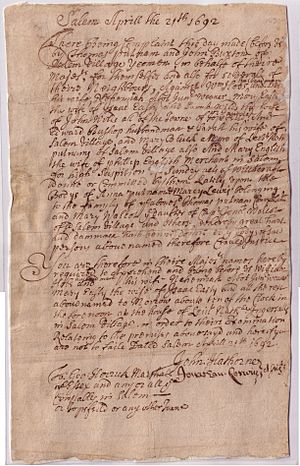 Salem Aprill the 21th 1692
There being Complaint this day made before us
by Thomas Putnam and John Buxton of
Salem Village Yeomen in behalfe of theire
Majesties for themselfes and also for severall of
theire Neighbours Against
his wife Nehemiah Abot
the wife of Isaac Esty and Sarah Wilds the wife
of John Wilds all of the Towne of
Edward Bushop husbandman & Sarah his wife of
Salem Village, and Mary Black A negro of Leut Nath
putnams of Salem Village also And Mary English
the wife of phillip English Merchant in Salem
for high Suspition of Sundry acts of Witchcraft
donne or Committed by them Lately upon the
Bodys of Anna putnam & Marcy Lewis belonging
to the family of Thomas putnam
and Mary Walcot Daughter of Jonathan Walcot
of Salem Village And others, whereby great hurt
and dammage hath benne donne to the bodys of
persons above named therefore Craved Justice
You are therefore in theire Majesties names hereby
required to Apprehend and bring before us William
and his wife
Mary Esty the wife of Isaac Esty and all the rest
abovenamed to Morrow aboute ten of the Clock in
the forenoon at the house of Leut Nath Ingersals
in Salem Village in order to theire Examination
Relateing to the premises abovesaid and hereof you
are not to faile Dated Salem Aprill 21th 1692
John Hathorne
Jonathan Corwin
To George Herrick Marshall
of Essex and any or all
Constables in Salem
or Topsfeild or any other Towne